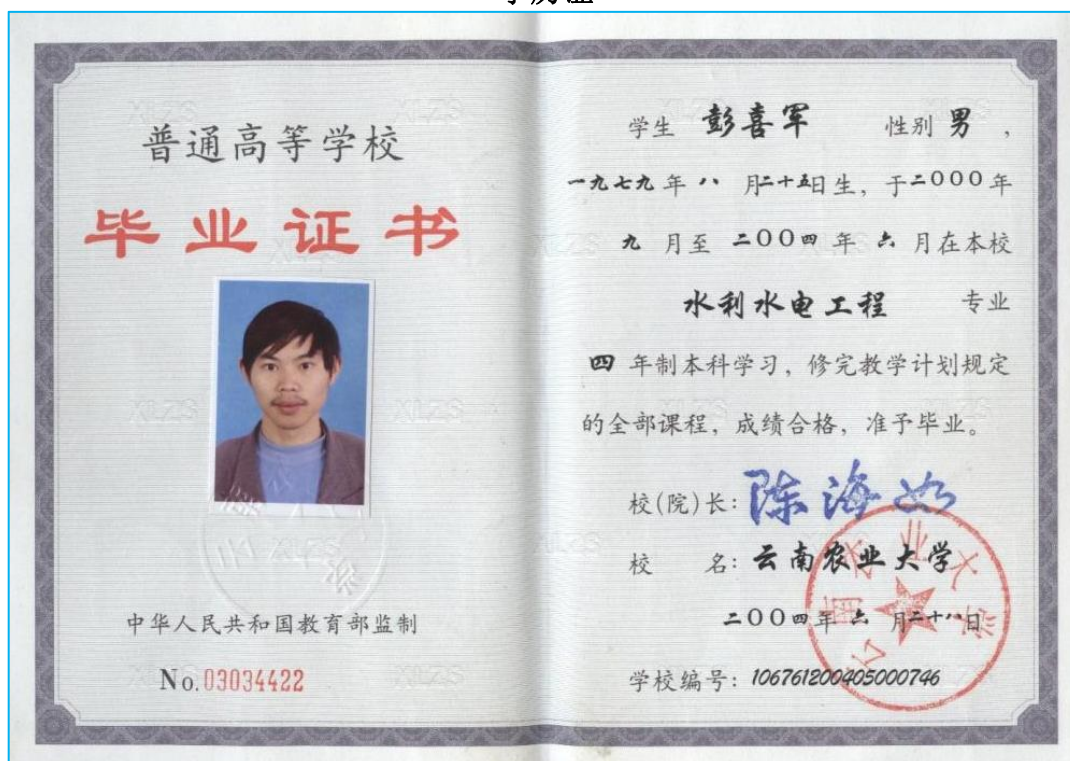 学历证
普通高等学校
毕业证书
中华人民共和国教育部监制
No.03034422
学生 彭喜军 性别 男 ,
一九七九 年 八 月二十五日生, 于二000年
九 月至 二00四 年 六 月在本校
水利水电工程 专业
四 年制本科学习, 修完教学计划规定
的全部课程, 成绩合格, 准予毕业。
校(院)长: 陈海如
校 名: 云南农业大学
二00四年 六 月二十八日
学校编号: 106761200405000746
云南农业大学
XLZS